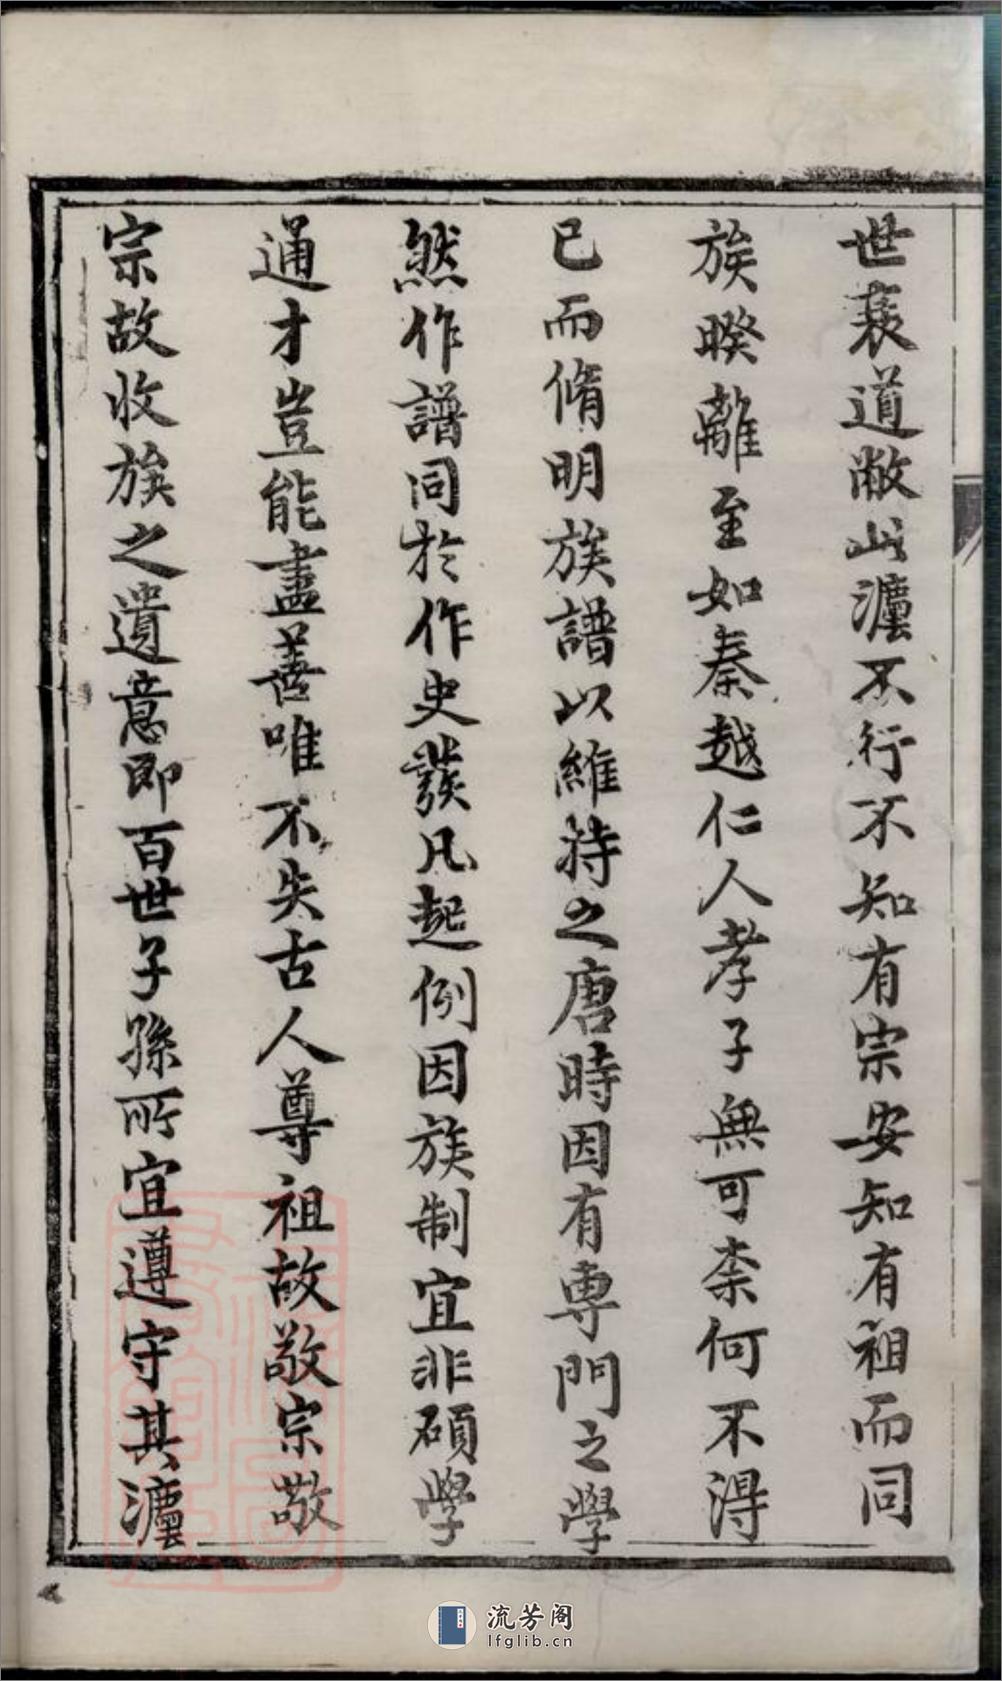 世衰道敝此灋不行不知有宗安知有祖而同
族暌離至如秦越仁人孝子無可柰何不得
已而脩明族譜以維持之唐時因有專門之學
然作譜同於作史發凡起例因族制宜非碩學
通才豈能盡善唯不失古人尊祖故敬宗敬
宗故收族之遺意即百世子孫所宜遵守其灋
流芳阁
lfglib.cn